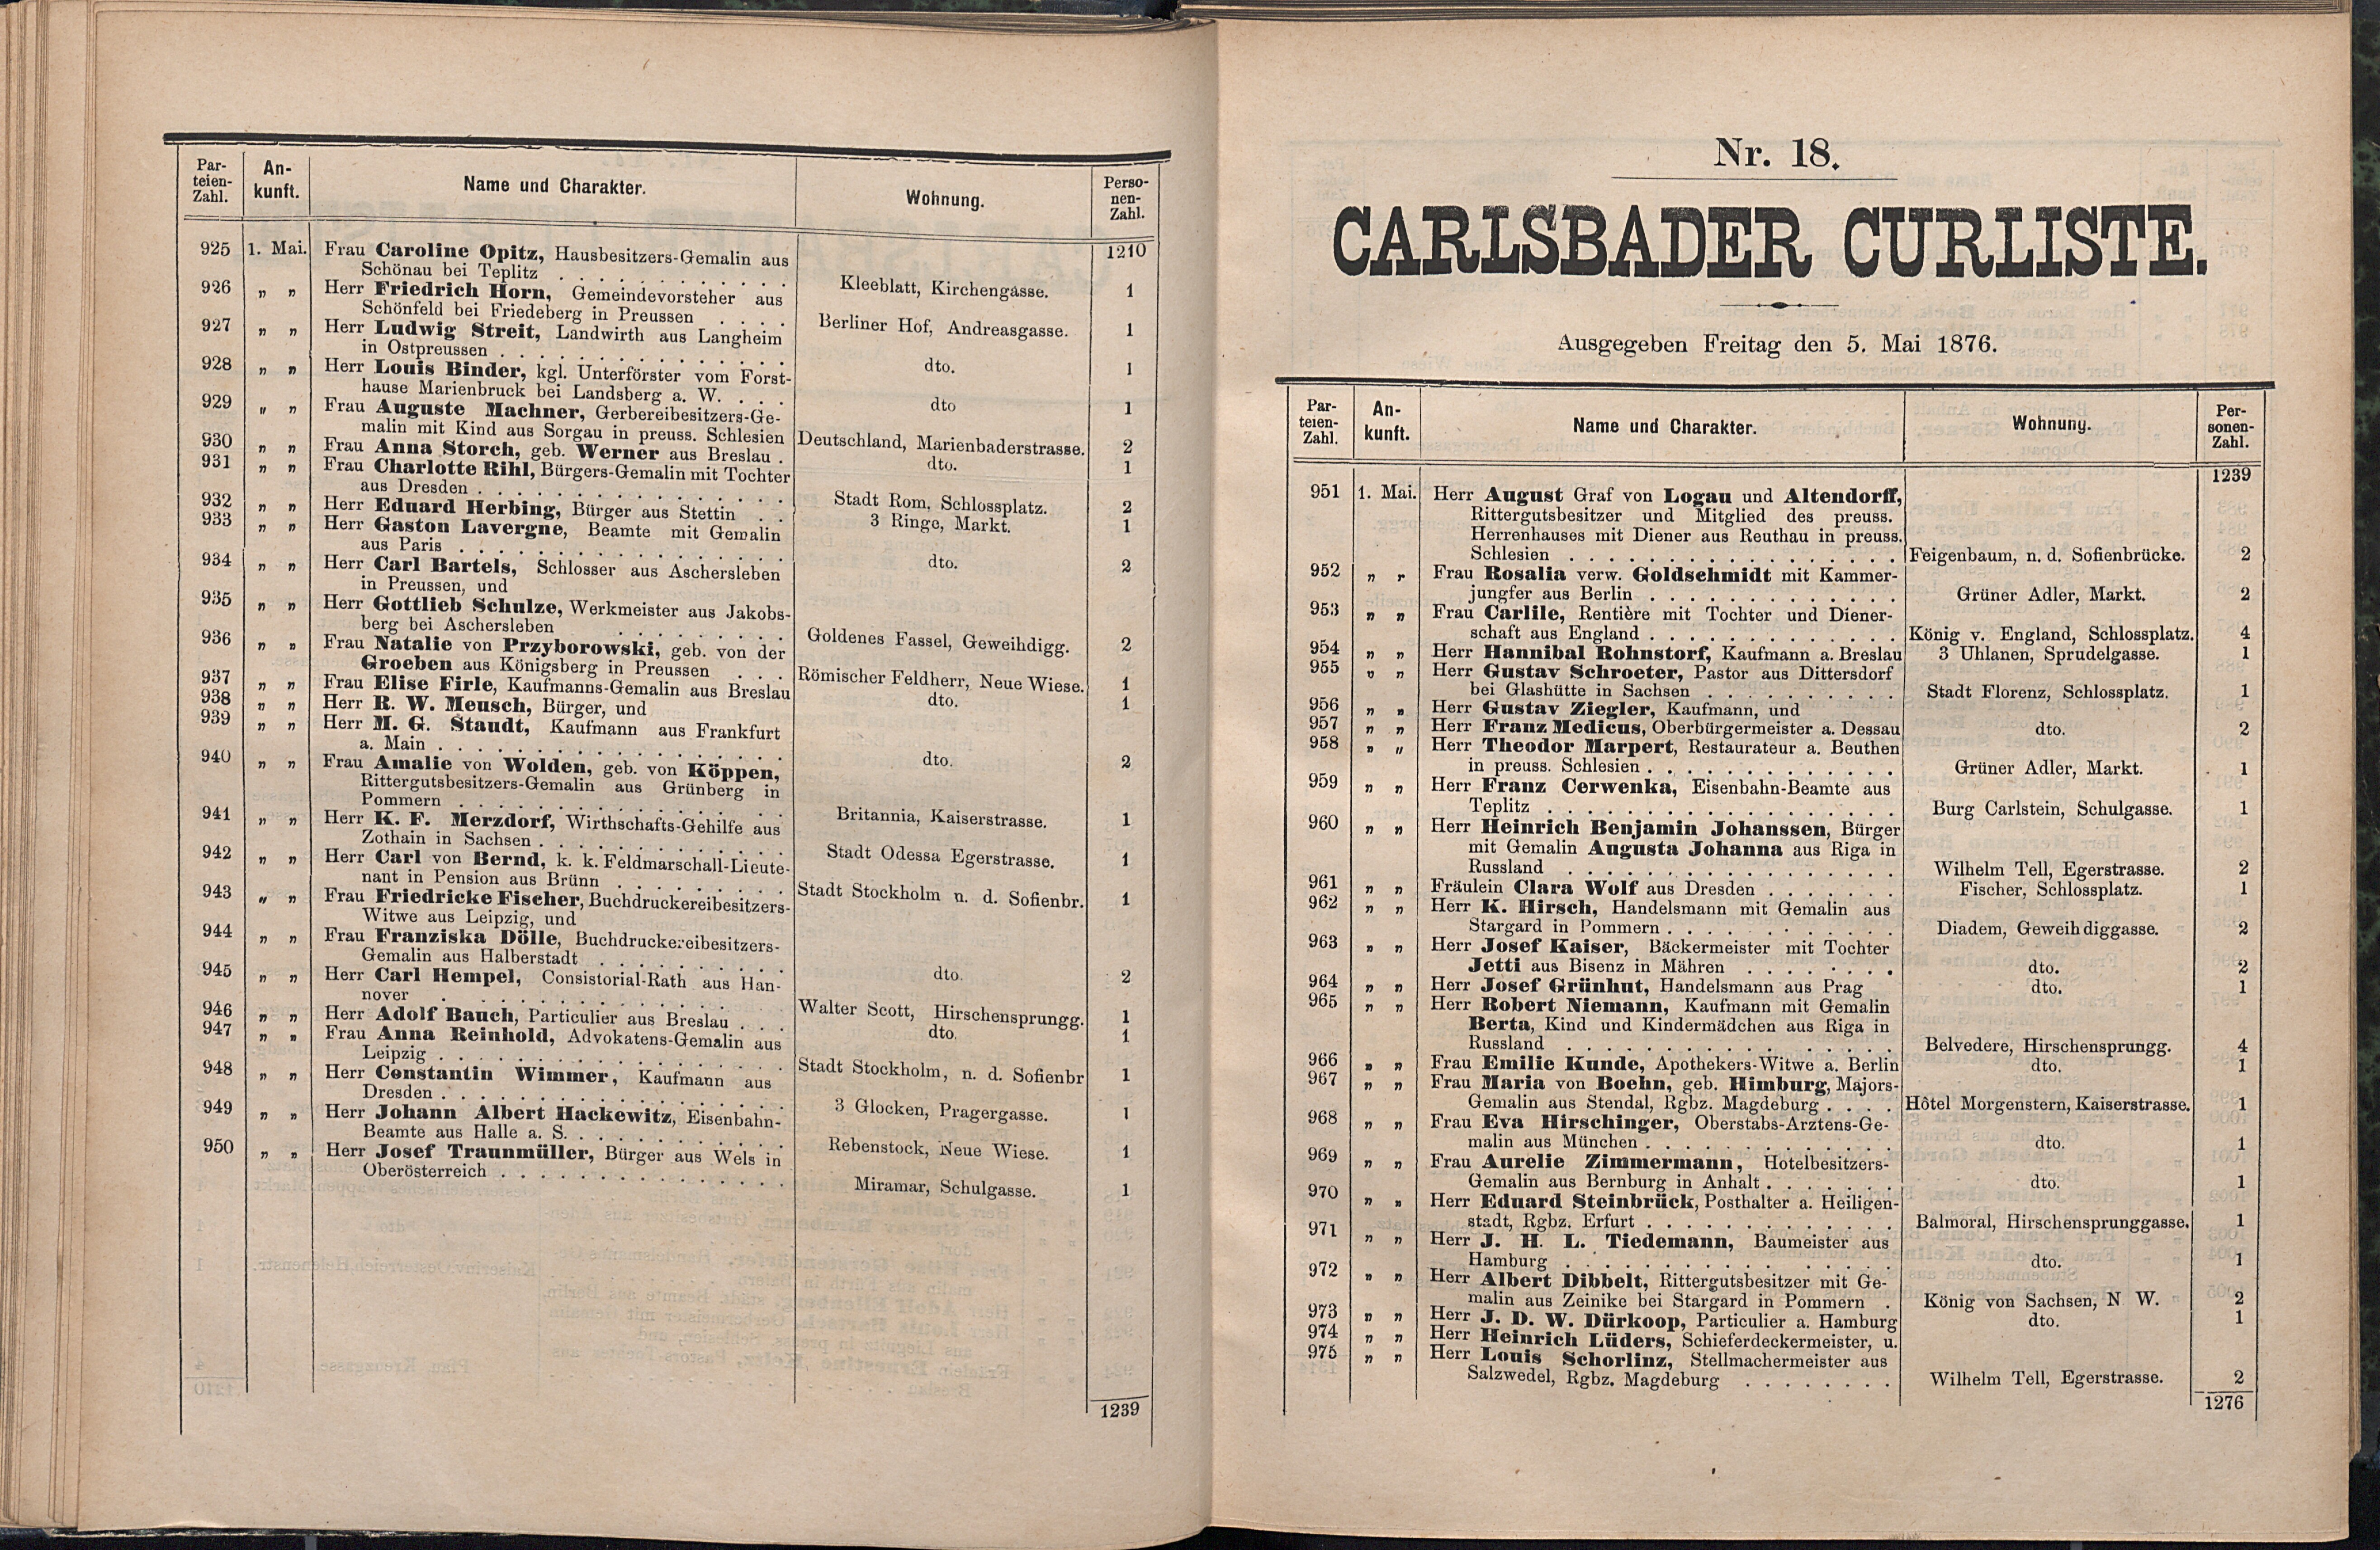 Par-
teien-
Zahl.
An-
kunft.
Name und Charakter.
Wohnung.
Perso-
nen-
Zahl.
1210
925 1. Mai. Frau Caroline Opitz, Hausbesitzers-Gemalin aus
Schönau bei Teplitz . . . . . . . . . . Kleeblatt, Kirchengasse. 1
926 „ „ Herr Friedrich Horn, Gemeindevorsteher aus
Schönfeld bei Friedeberg in Preussen . . . . Berliner Hof, Andreasgasse. 1
927 „ „ Herr Ludwig Streit, Landwirth aus Langheim
in Ostpreussen . . . . . . . . . . . . dto. 1
928 „ „ Herr Louis Binder, kgl. Unterförster vom Forst-
hause Marienbruck bei Landsberg a. W. . . . dto 1
929 „ „ Frau Auguste Machner, Gerbereibesitzers-Ge-
malin mit Kind aus Sorgau in preuss. Schlesien Deutschland, Marienbaderstrasse. 2
930 „ „ Frau Anna Storch, geb. Werner aus Breslau . dto. 1
931 „ „ Frau Charlotte Rihl, Bürgers-Gemalin mit Tochter
aus Dresden . . . . . . . . . . . . . Stadt Rom, Schlossplatz. 2
932 „ „ Herr Eduard Herbing, Bürger aus Stettin . . 3 Ringe, Markt. 1
933 „ „ Herr Gaston Lavergne, Beamte mit Gemalin
aus Paris . . . . . . . . . . . . . . dto. 2
934 „ „ Herr Carl Bartels, Schlosser aus Aschersleben
in Preussen, und
935 „ „ Herr Gottlieb Schulze, Werkmeister aus Jakobs-
berg bei Aschersleben . . . . . . . . Goldenes Fassel, Geweihdigg. 2
936 „ „ Frau Natalie von Przyborowski, geb. von der
Groeben aus Königsberg in Preussen . . . Römischer Feldherr, Neue Wiese. 1
937 „ „ Frau Elise Firle, Kaufmanns-Gemalin aus Breslau dto. 1
938 „ „ Herr R. W. Meusch, Bürger, und
939 „ „ Herr M. G. Staudt, Kaufmann aus Frankfurt
a. Main . . . . . . . . . . . . . . . dto. 2
940 „ „ Frau Amalie von Wolden, geb. von Köppen,
Rittergutsbesitzers-Gemalin aus Grünberg in
Pommern . . . . . . . . . . . . . . Britannia, Kaiserstrasse. 1
941 „ „ Herr K. F. Merzdorf, Wirthschafts-Gehilfe aus
Zothain in Sachsen . . . . . . . . . . . Stadt Odessa Egerstrasse. 1
942 „ „ Herr Carl von Bernd, k. k. Feldmarschall-Lieute-
nant in Pension aus Brünn . . . . . . . . Stadt Stockholm n. d. Sofienbr. 1
943 „ „ Frau Friedricke Fischer, Buchdruckereibesitzers-
Witwe aus Leipzig, und
944 „ „ Frau Franziska Dölle, Buchdruckereibesitzers-
Gemalin aus Halberstadt . . . . . . . . . dto. 2
945 „ „ Herr Carl Hempel, Consistorial-Rath aus Han-
nover . . . . . . . . . . . . . . . Walter Scott, Hirschensprungg. 1
946 „ „ Herr Adolf Bauch, Particulier aus Breslau . . . dto. 1
947 „ „ Frau Anna Reinhold, Advokatens-Gemalin aus
Leipzig . . . . . . . . . . . . . . . Stadt Stockholm, n. d. Sofienbr 1
948 „ „ Herr Constantin Wimmer, Kaufmann aus
Dresden . . . . . . . . . . . . . . . 3 Glocken, Pragergasse. 1
949 „ „ Herr Johann Albert Hackewitz, Eisenbahn-
Beamte aus Halle a. S. . . . . . . . . . . Rebenstock, Neue Wiese. 1
950 „ „ Herr Josef Traunmüller, Bürger aus Wels in
Oberösterreich . . . . . . . . . . . . . Miramar, Schulgasse. 1
1239
Nr. 18.
CARLSBADER CURLISTE.
Ausgegeben Freitag den 5. Mai 1876.
Par-
teien-
Zahl.
An-
kunft.
Name und Charakter.
Wohnung.
Per-
sonen-
Zahl.
1239
951 1. Mai. Herr August Graf von Logau und Altendorff,
Rittergutsbesitzer und Mitglied des preuss.
Herrenhauses mit Diener aus Reuthau in preuss.
Schlesien . . . . . . . . . . . . . . Feigenbaum, n. d. Sofienbrücke. 2
952 „ „ Frau Rosalia verw. Goldschmidt mit Kammer-
jungfer aus Berlin . . . . . . . . . . . Grüner Adler, Markt. 2
953 „ „ Frau Carlile, Rentière mit Tochter und Diener-
schaft aus England . . . . . . . . . . . König v. England, Schlossplatz. 4
954 „ „ Herr Hannibal Rohnstorf, Kaufmann a. Breslau 3 Uhlanen, Sprudelgasse. 1
955 „ „ Herr Gustav Schroeter, Pastor aus Dittersdorf
bei Glashütte in Sachsen . . . . . . . . . Stadt Florenz, Schlossplatz. 1
956 „ „ Herr Gustav Ziegler, Kaufmann, und
957 „ „ Herr Franz Medicus, Oberbürgermeister a. Dessau dto. 2
958 „ „ Herr Theodor Marpert, Restaurateur a. Beuthen
in preuss. Schlesien . . . . . . . . . . . Grüner Adler, Markt. 1
959 „ „ Herr Franz Cerwenka, Eisenbahn-Beamte aus
Teplitz . . . . . . . . . . . . . . . Burg Carlstein, Schulgasse. 1
960 „ „ Herr Heinrich Benjamin Johanssen, Bürger
mit Gemalin Augusta Johanna aus Riga in
Russland . . . . . . . . . . . . . . Wilhelm Tell, Egerstrasse. 2
961 „ „ Fräulein Clara Wolf aus Dresden . . . . . . Fischer, Schlossplatz. 1
962 „ „ Herr K. Hirsch, Handelsmann mit Gemalin aus
Stargard in Pommern . . . . . . . . . . Diadem, Geweihdiggasse. 2
963 „ „ Herr Josef Kaiser, Bäckermeister mit Tochter
Jetti aus Bisenz in Mähren . . . . . . . . dto. 2
964 „ „ Herr Josef Grünhut, Handelsmann aus Prag dto. 1
965 „ „ Herr Robert Niemann, Kaufmann mit Gemalin
Berta, Kind und Kindermädchen aus Riga in
Russland . . . . . . . . . . . . . . Belvedere, Hirschensprungg. 4
966 „ „ Frau Emilie Kunde, Apothekers-Witwe a. Berlin dto. 1
967 „ „ Frau Maria von Boehn, geb. Himburg, Majors-
Gemalin aus Stendal, Rgbz. Magdeburg . . . . Hôtel Morgenstern, Kaiserstrasse. 1
968 „ „ Frau Eva Hirschinger, Oberstabs-Arztens-Ge-
malin aus München . . . . . . . . . . . dto. 1
969 „ „ Frau Aurelie Zimmermann, Hotelbesitzers-
Gemalin aus Bernburg in Anhalt . . . . . . dto. 1
970 „ „ Herr Eduard Steinbrück, Posthalter a. Heiligen-
stadt, Rgbz. Erfurt . . . . . . . . . . . Balmoral, Hirschensprunggasse. 1
971 „ „ Herr J. H. L. Tiedemann, Baumeister aus
Hamburg . . . . . . . . . . . . . . dto. 1
972 „ „ Herr Albert Dibbelt, Rittergutsbesitzer mit Ge-
malin aus Zeinike bei Stargard in Pommern . König von Sachsen, N W. 2
973 „ „ Herr J. D. W. Dürkoop, Particulier a. Hamburg dto. 1
974 „ „ Herr Heinrich Lüders, Schieferdeckermeister, u.
975 „ „ Herr Louis Schorlinz, Stellmachermeister aus
Salzwedel, Rgbz. Magdeburg . . . . . . . . Wilhelm Tell, Egerstrasse. 2
1276